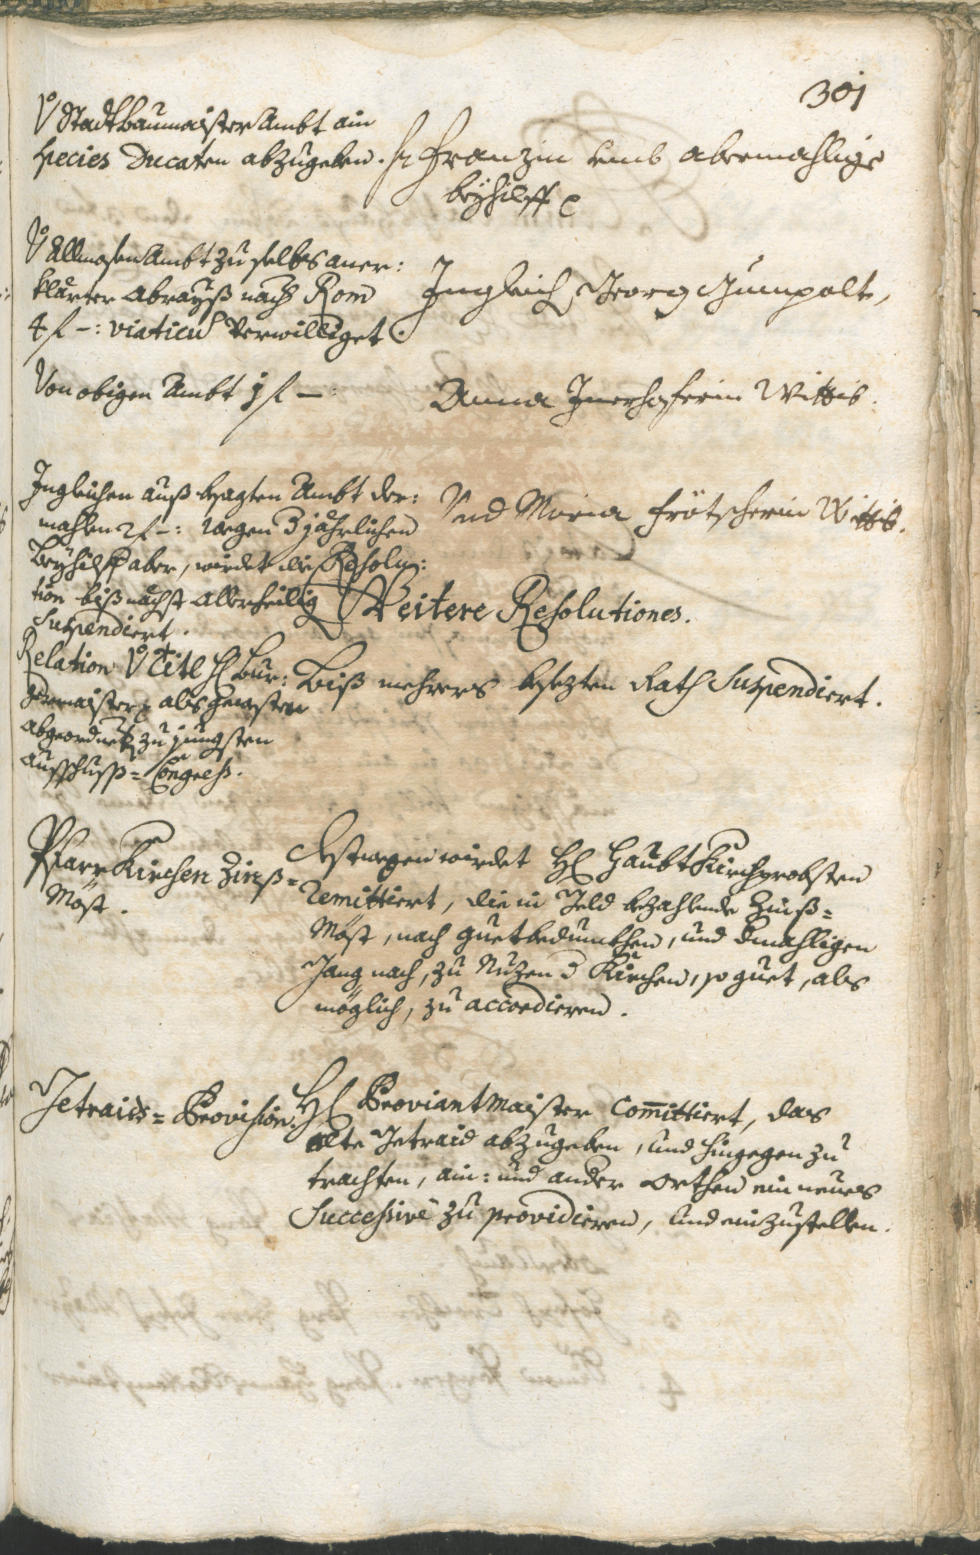 301
Stattbaumaister Ambt ain
species Ducaten abzugeben.
Franzin umb abermahlige
beyhilff
Allmosen Ambt zu selbes aner:
klärter abrayß nach Rom
4 f –: viaticu verwilliget.
Ingleich Georg Gumpolt,
Von obigen Ambt 1 f –
Anna Innerhoferin Wittib.
Ingleichen auß besagten Ambt der:
mahlen 2 f –: wegen 3 jährlichen
Beyhilff aber, wirdet die Resolu:
tion biß nächst Allerheilig
Suspendiert.
Und Maria Frötscherin Wittib.
Weitere Resolutiones.
Relation Titl H Bur:
germaister als gewesten
abgeordneten zu jüngsten
Ausschuss= Congress.
Biß mehrers besezten Rath Suspendiert.
Pfarr Kirchen Zinß=
Möst.
Estwegen wirdet H Haubt Kirchprobsten
remittiert, die in Geld bezahlende Zinß=
Möst, nach guetbedunckhen, und dmahligen
Gang nach, zu Nuzen d Kirchen, so guet, als
möglich, zu accordieren.
Getraid= Provision.
H Proviantmaister Committiert, das
alte Getraid abzugeben, und hingegen zu
trachten, ain: und ander Orthen ein neues
Successive zu providieren, und einzustellen.